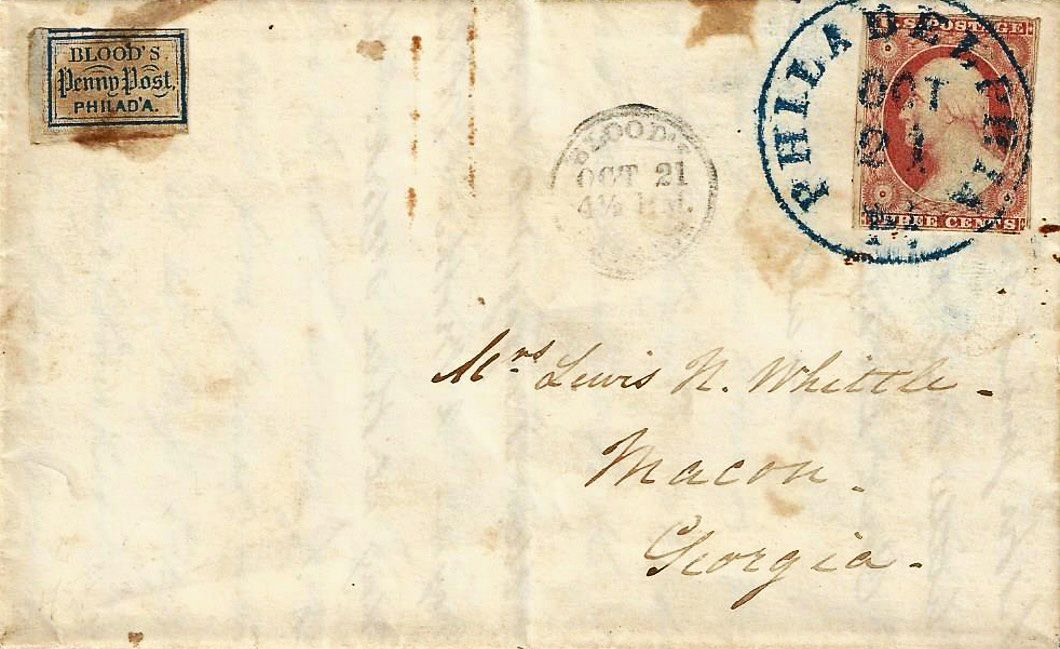 BLOOD'S
Penny Post,
PHILAD'A.
BLOOD'S
OCT 21
4½
PHILADELPHIA
OCT
21
PA
U.S. POSTAGE
THREE CENTS
Mrs Lewis N. Whittle -
Macon -
Georgia -